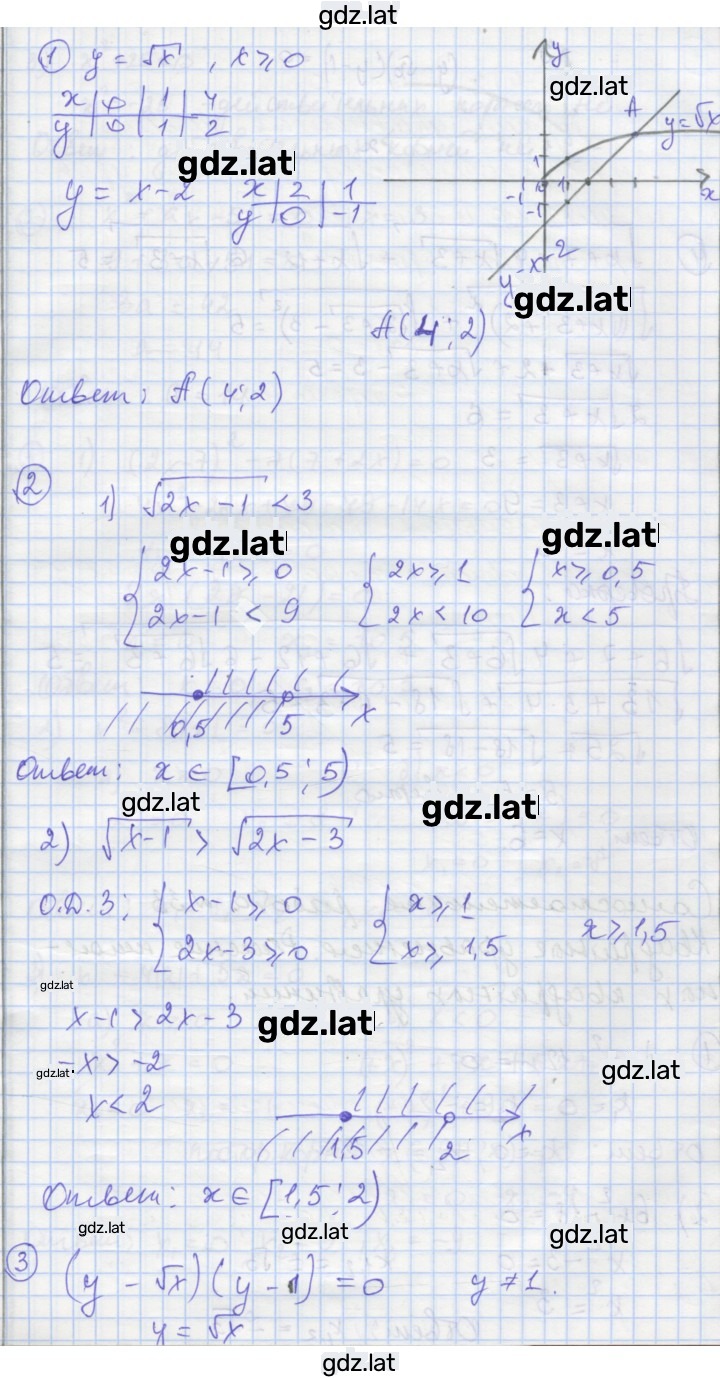 gdz.lat
① y = √x , x ≥ 0
x | 0 | 1 | 4
y | 0 | 1 | 2
gdz.lat
y = x-2
x | 2 | 1
y | 0 | -1
y
gdz.lat
A
y=√x
1
-1 0 1
x
-1
y=x-2
gdz.lat
A(4;2)
Ответ: A(4;2)
② 1) √(2x-1) < 3
gdz.lat
gdz.lat
{ 2x-1 ≥ 0 { 2x ≥ 1 { x ≥ 0,5
{ 2x-1 < 9 { 2x < 10 { x < 5
0,5 5 x
Ответ: x ∈ [0,5;5)
gdz.lat
gdz.lat
2) √(x-1) > √(2x-3)
О.Д.З: { x-1 ≥ 0 { x ≥ 1 x ≥ 1,5
{ 2x-3 ≥ 0 { x ≥ 1,5
gdz.lat
x-1 > 2x-3
gdz.lat
-x > -2
gdz.lat
gdz.lat
x < 2
1,5 2 x
Ответ: x ∈ [1,5;2)
gdz.lat
gdz.lat
gdz.lat
③ (y - √x)(y - 1) = 0 y ≠ 1.
y = √x
gdz.lat